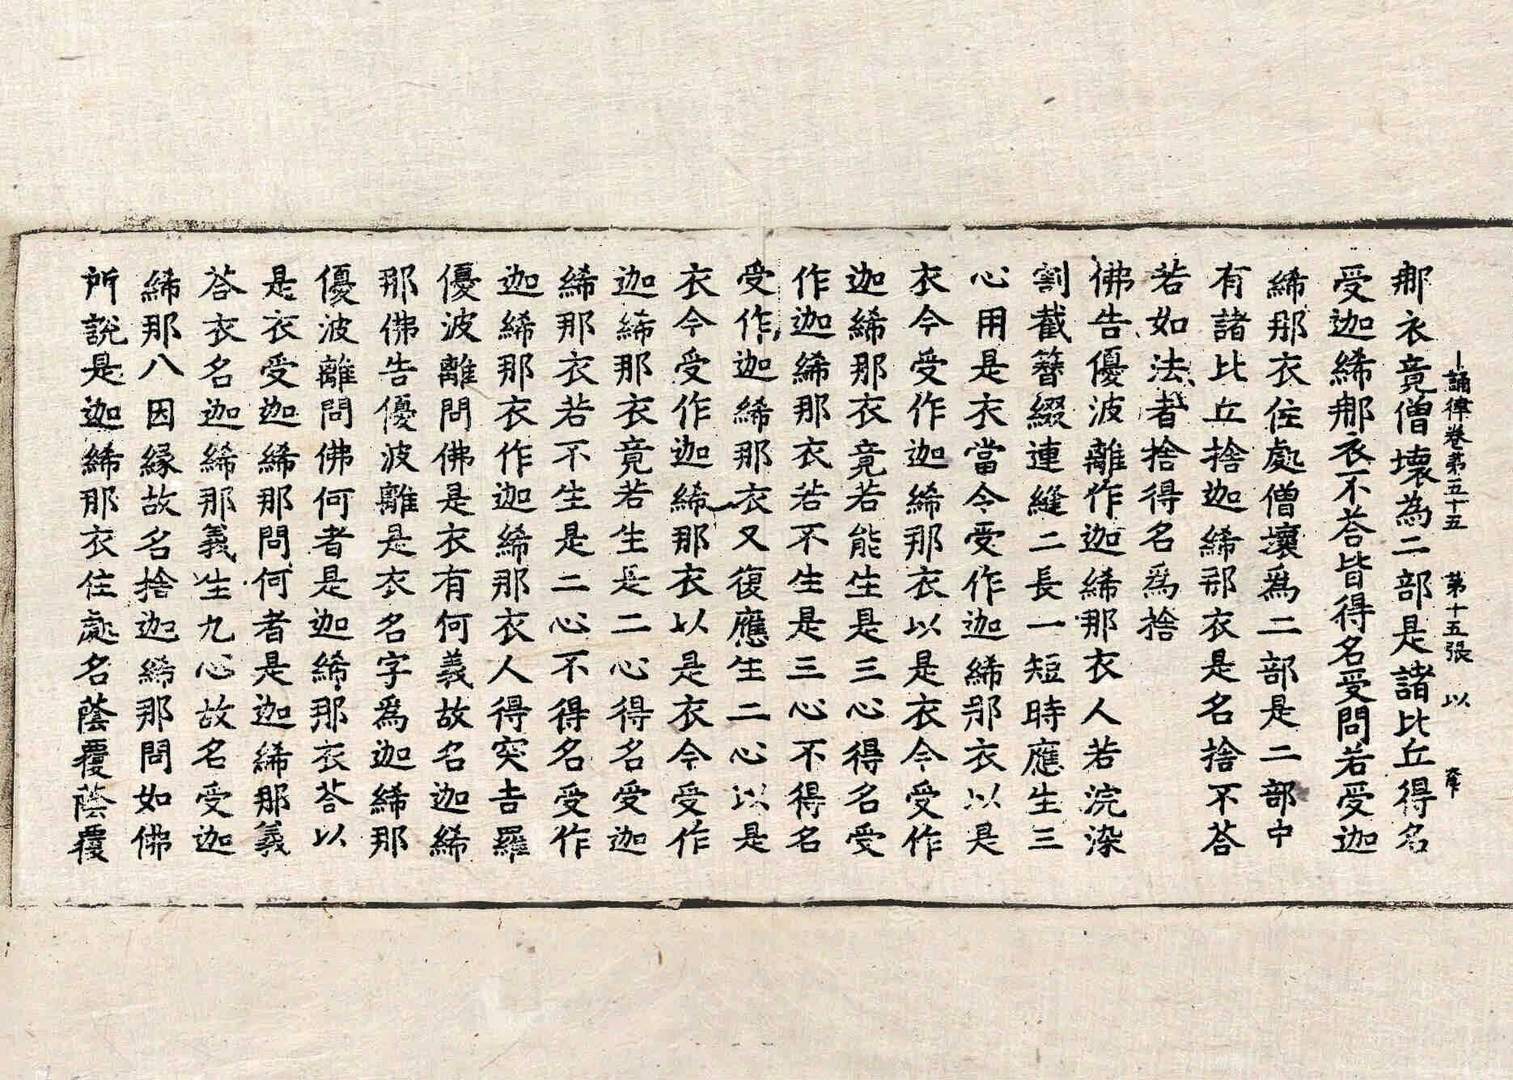 十誦律卷第五十五 第十五張 以
那衣竟僧壞為二部是諸比丘得名
受迦絺那衣不荅皆得名受問若受迦
絺那衣住處僧壞爲二部是二部中
有諸比丘捨迦絺那衣是名捨不荅
若如法者捨得名爲捨
佛告優波離作迦絺那衣人若浣染
割截簪綴連縫二長一短時應生三
心用是衣當今受作迦絺那衣以是
衣今受作迦絺那衣以是衣今受作
迦絺那衣竟若能生是三心得名受
作迦絺那衣若不生是三心不得名
受作迦絺那衣又復應生二心以是
衣今受作迦絺那衣以是衣今受作
迦絺那衣竟若生是二心得名受迦
絺那衣若不生是二心不得名受作
迦絺那衣作迦絺那衣人得突吉羅
優波離問佛是衣有何義故名迦絺
那佛告優波離是衣名字爲迦絺那
優波離問佛何者是迦絺那衣荅以
是衣受迦絺那問何者是迦絺那義
荅衣名迦絺那義生九心故名受迦
絺那八因緣故名捨迦絺那問如佛
所說是迦絺那衣住處名蔭覆蔭覆